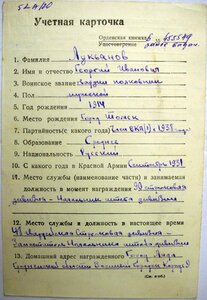 Учетная карточка
Орденская книжка
Удостоверение № 455549
1. Фамилия Лукванов
2. Имя и отчество Георгий Иванович
3. Воинское звание Гвардии полковник
4. Пол мужской
5. Год рождения 1914
6. Место рождения Город
7. Партийность (с какого года) Член ВКП(б) с 1938 года
8. Образование Среднее
9. Национальность Русский
10. С какого года в Красной Армии Сентябрь 1931
11. Место службы (наименование части) и занимаемая
должность в момент награждения 99 стрелковая
дивизия - Начальник штаба дивизии
12. Место службы и должность в настоящее время
гвардейская Стрелковая дивизия -
Заместитель Начальника штаба дивизии
13. Домашний адрес награжденного Город
области